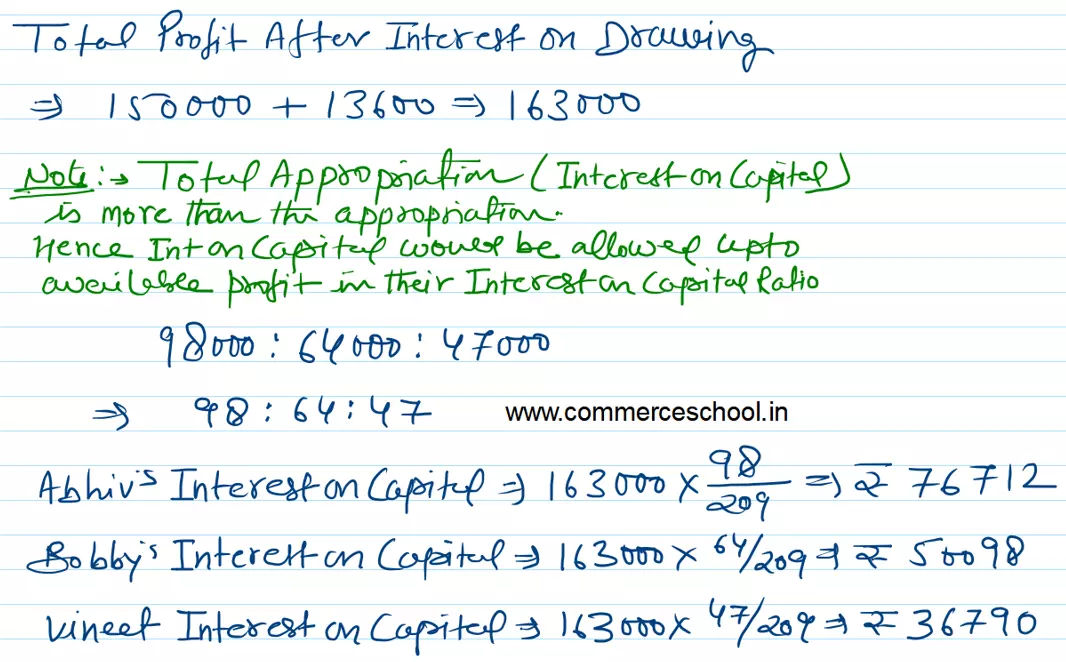 Total Profit After Interest on Drawing
⇒ 150000 + 13600 ⇒ 163000
Note:→ Total Appropriation (Interest on Capital)
is more than the appropriation.
Hence Int on Capital would be allowed upto
available profit in their Interest on Capital Ratio
98000 : 64000 : 47000
⇒ 98 : 64 : 47 www.commerceschool.in
Abhiv's Interest on Capital ⇒ 163000 × 98/209 ⇒ ₹ 76712
Bobby's Interest on Capital ⇒ 163000 × 64/209 ⇒ ₹ 50098
Vineet Interest on Capital ⇒ 163000 × 47/209 ⇒ ₹ 36790